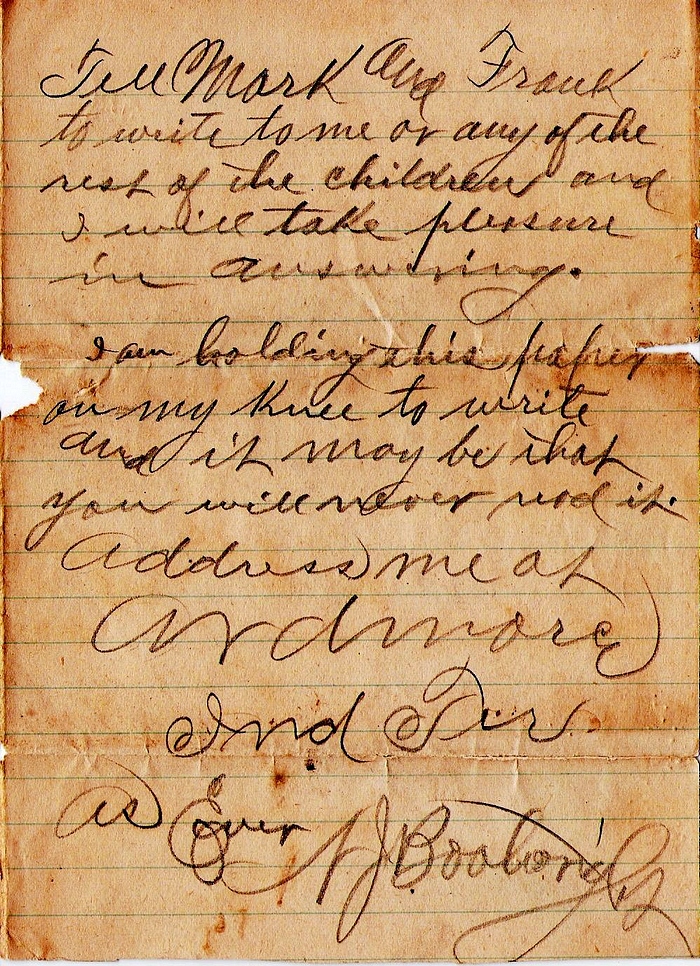 Tell Mark And Frank
to write to me or any of the
rest of the children and
I will take pleasure
in answering.
I am holding this paper
on my Knee to write
And it may be that
you will never read it.
Address me at
Ardmore
Ind Ter.
As Ever